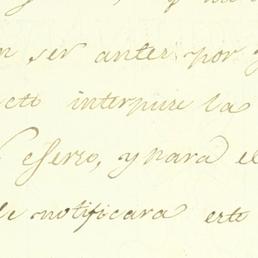 n ser antes por
cto interpuse la
efserzo, y para el
le notificara esto